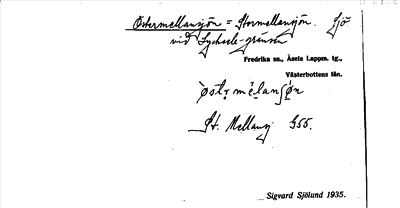 Östermellansjön = Stormellansjön. Sjö
vid Lycksele-gränsen
Fredrika sn., Åsele Lappm. tg.,
Västerbottens län.
St. Mellansj 955.
Sigvard Sjölund 1935.